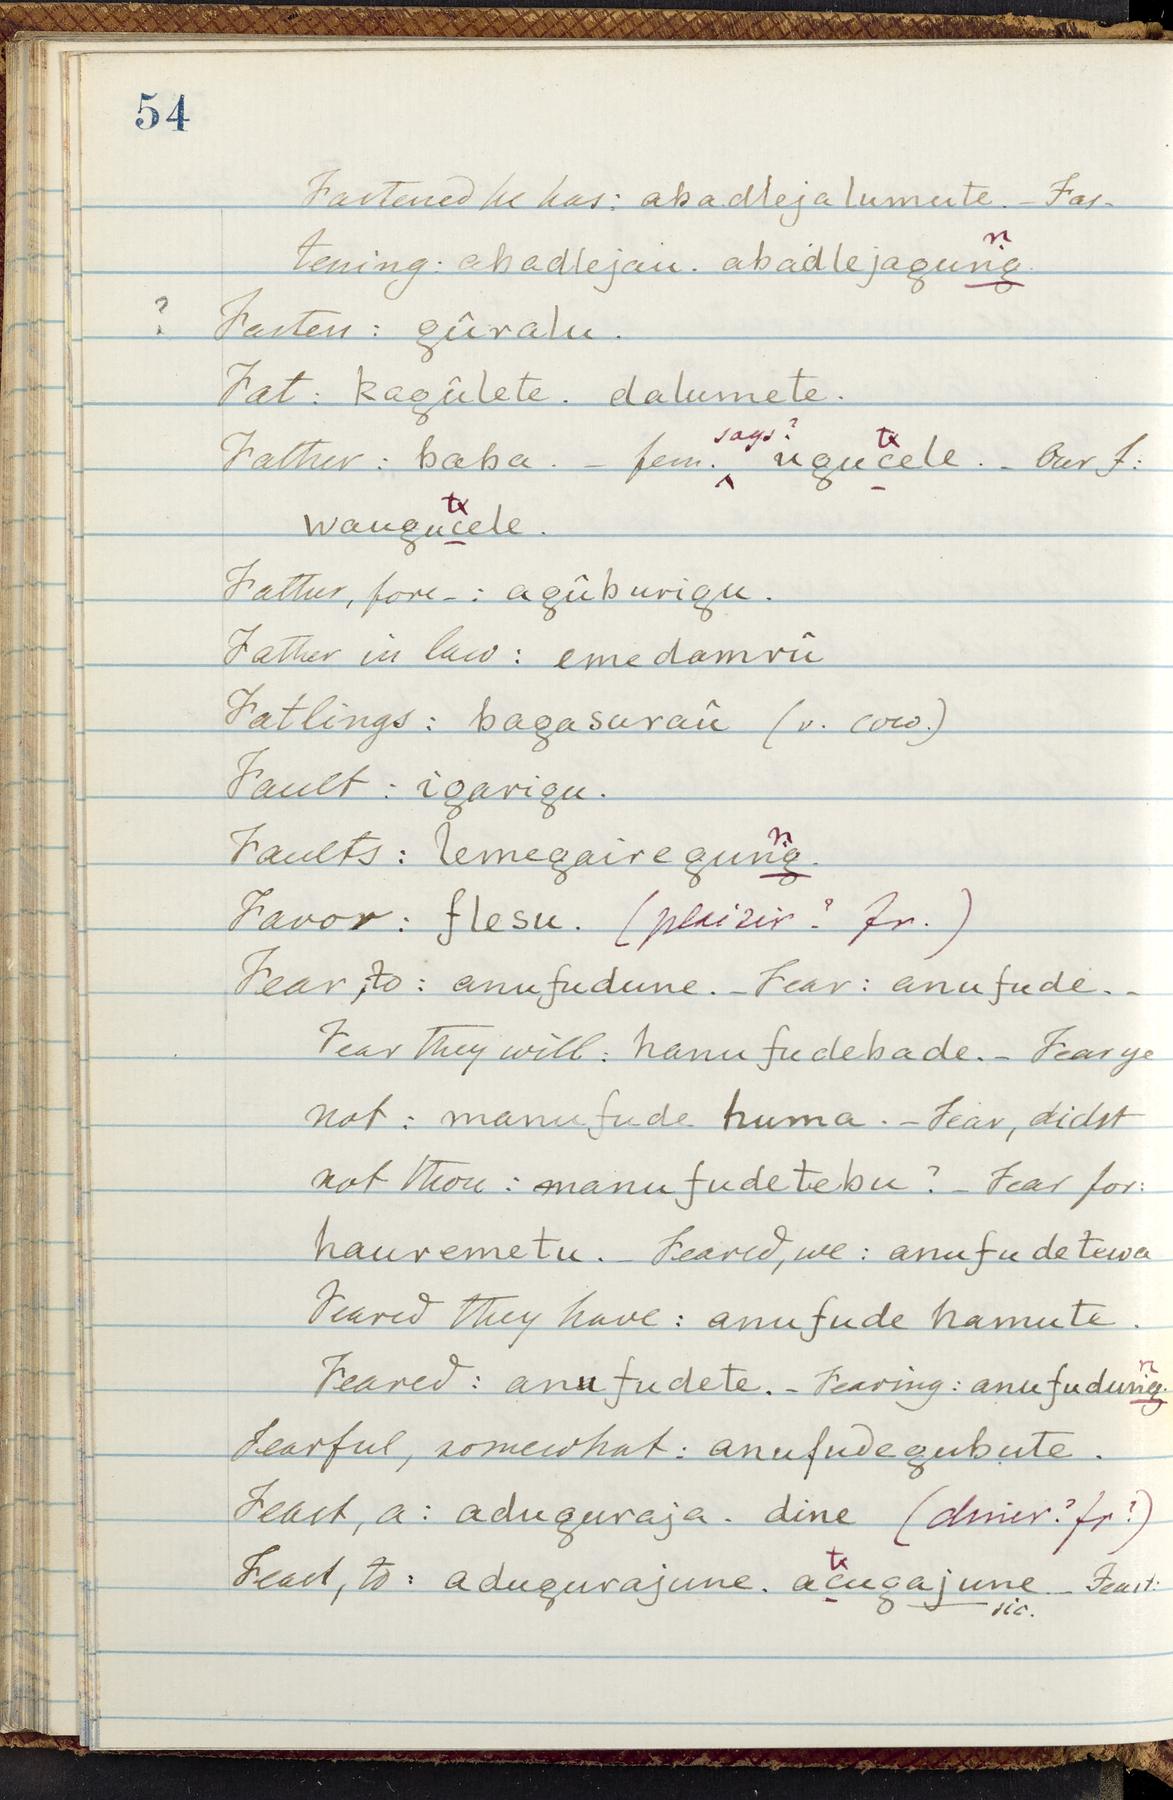 54
Fastened he has: abadlejalumute. – Fas-
tening: abadlejau. abadlejaguṅg n
? Fasten: gûralu.
Fat: kagûlete. dalumete.
Father: baba. – fem. ‸ says? ugucele tx. – Our f:
waugucele tx.
Father, fore-: agûburigu.
Father in law: emedamrû
Fatlings: bagasuraû (v. cow.)
Fault: igarigu.
Faults: lemegaireguṅg n.
Favor: flesu. (plaizir? fr.)
Fear, to: anufudune. – Fear: anufude. –
Fear they will: hanufudebade. – Fear ye
not: manufude huma. – Fear, didst
not thou: manufudetebu? – Fear for:
hauremetu. – Feared, we: anufudetewa
Feared they have: anufude hamute.
Feared: anufudete. – Fearing: anufuduṅg n.
Fearful, somewhat: anufudegubute.
Feast, a: aduguraja. dine (diner? fr?)
Feast, to: adugurajune. acugajune tx – Feast:
sic.